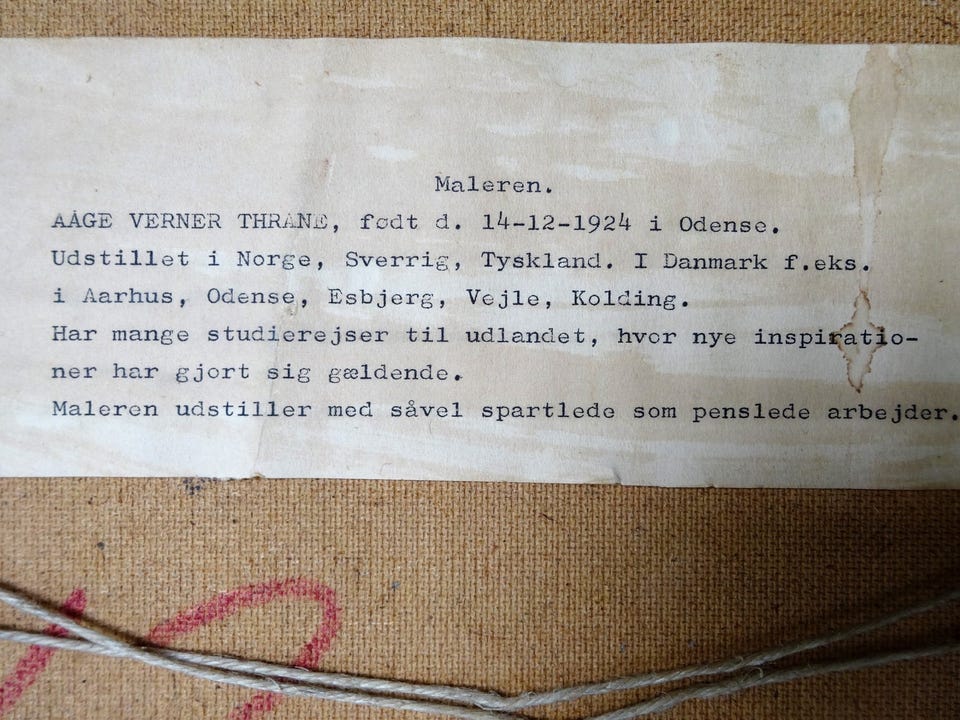 Maleren.
AÅGE VERNER THRANE, født d. 14-12-1924 i Odense.
Udstillet i Norge, Sverrig, Tyskland. I Danmark f.eks.
i Aarhus, Odense, Esbjerg, Vejle, Kolding.
Har mange studierejser til udlandet, hvor nye inspiratio-
ner har gjort sig gældende.
Maleren udstiller med såvel spartlede som penslede arbejder.